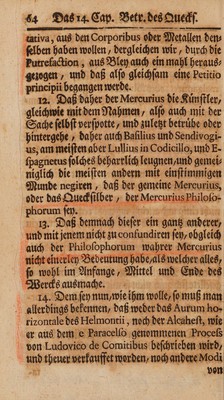 64 Das 14. Cap. Betr. des Quecks.
tativa, aus den Corporibus oder Metallen den-
selben haben wollen, dergleichen wir, durch die
Putrefaction, aus Bley auch ein mahl heraus-
gezogen, und daß also gleichsam eine Petitio
principii begangen werde.
12. Daß daher der Mercurius die Künstler,
gleichwie mit dem Nahmen, also auch mit der
Sache selbst verspotte, und zuletzt betrübe oder
hintergehe, daher auch Basilius und Sendivogi-
us, am meisten aber Lullius in Codicillo, und E-
spagnetus solches beharrlich leugnen, und gemei-
niglich die meisten andern mit einstimmigen
Munde negiren, daß der gemeine Mercurius
oder das Quecksilber, der Mercurius Philoso-
phorum sey.
13. Daß demnach dieser ein gantz anderer,
und mit jenem nicht zu confundiren sey, obgleich
auch der Philosophorum wahrer Mercurius
nicht einerley Bedeutung habe, als welcher alles,
so wohl im Anfange, Mittel und Ende des
Wercks ausmache.
14. Dem sey nun, wie ihm wolle, so muß man
allerdings bekennen, daß weder das Aurum ho-
rizontale des Helmontii, noch der Alcahest, wie
er aus dem e Paracelso genommenen Process
von Ludovico de Comitibus beschrieben wird,
und theuer verkauffet worden, noch andere Modi
von